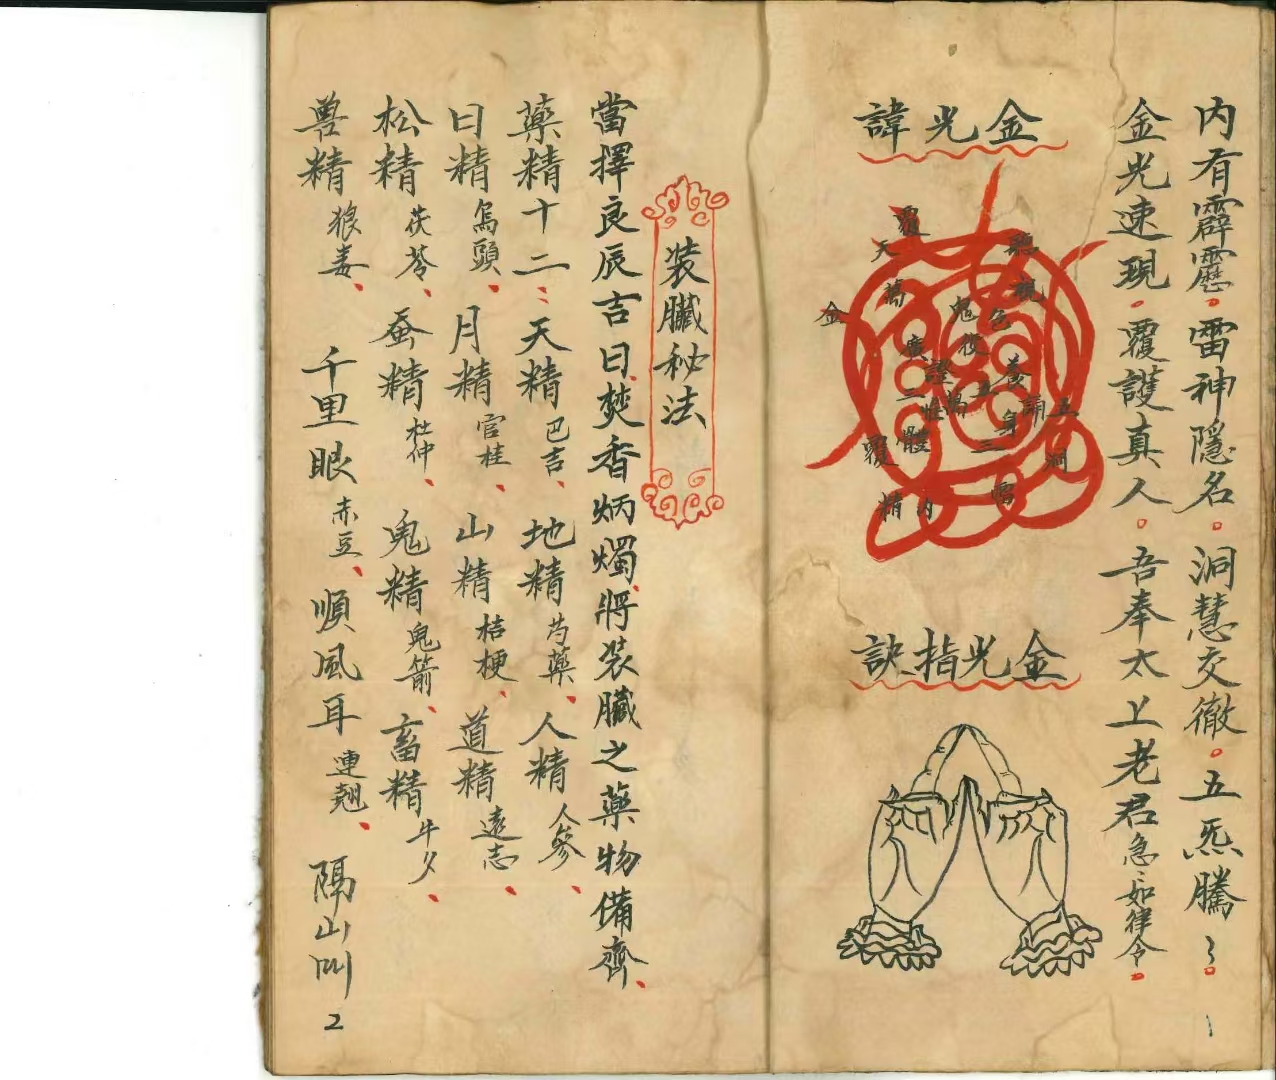 内有霹靂。雷神隱名。洞慧交徹。五炁騰〻。
金光速現。覆護真人。吾奉太上老君急〻如律令。
金光諱
金光指訣
1
裝臟秘法
當擇良辰吉日、焚香炳燭、將裝臟之藥物備齊、
藥精十二：天精巴吉、地精芍藥、人精人參、
日精烏頭、月精官桂、山精桔梗、道精遠志、
松精茯苓、蚕精杜仲、鬼精鬼箭、畜精牛夕、
兽精狼毒、千里眼赤豆、順風耳連翹、隔山叫
2